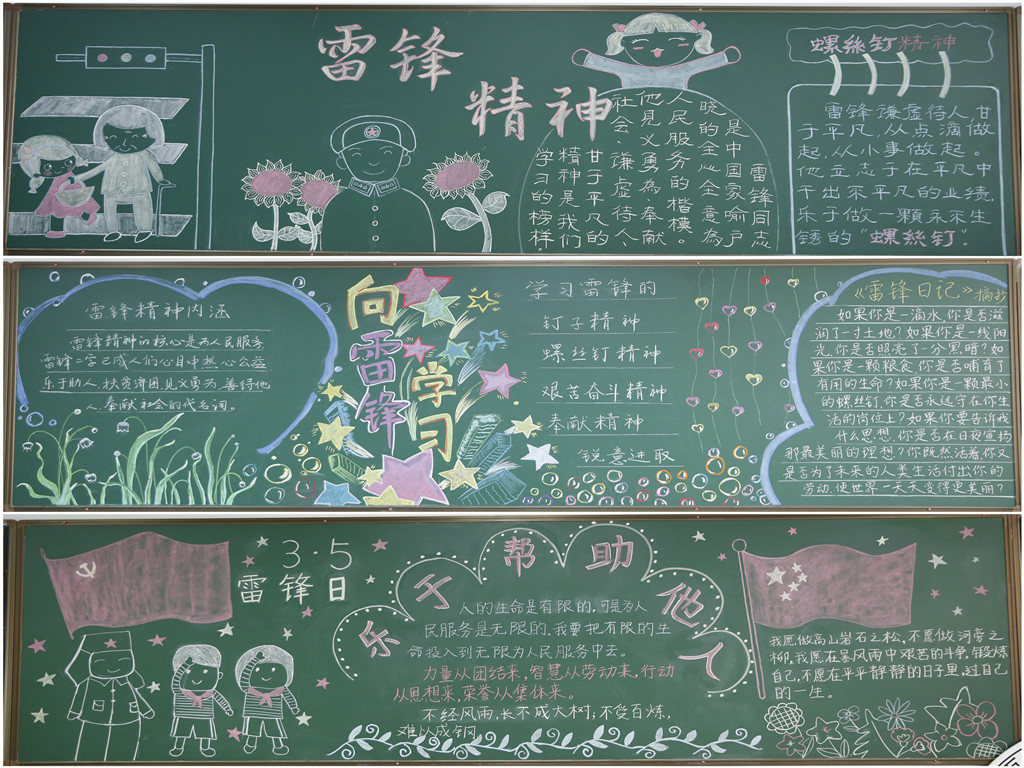 雷锋
精神
雷锋同志
是中国家喻户
晓的全心全意為
人民服务的楷模。
他見义勇為、奉献
社会、谦虚待人、
甘于平凡的
精神是我们
学习的榜样
螺絲钉精神
雷锋谦虚待人,甘
于平凡,从点滴做
起,从小事做起。
他立志于在平凡中
干出不平凡的业绩,
乐于做一颗永不生
锈的“螺絲钉”.
雷锋精神内涵
雷锋精神的核心是为人民服务
雷锋二字已成人们心目中热心公益
乐于助人,扶贫济困,见义勇为,善待他
人,奉献社会的代名词。
向
雷锋
学习
学习雷锋的
钉子精神
螺丝钉精神
艰苦奋斗精神
奉献精神
锐意进取
《雷锋日记》摘抄
如果你是一滴水,你是否滋
润了一寸土地?如果你是一线阳
光,你是否照亮了一分黑暗?如
果你是一颗粮食,你是否哺育了
有用的生命?如果你是一颗最小
的螺丝钉,你是否永远守在你生
活的岗位上?如果你要告诉我
什么思想,你是否在日夜宣扬
那最美丽的理想?你既然活着,你又
是否为了未来的人类生活付出你的
劳动,使世界一天天变得更美丽?
3·5
雷锋日
乐于帮助他人
人的生命是有限的,可是为人
民服务是无限的,我要把有限的生
命投入到无限为人民服务中去。
力量从团结来,智慧从劳动来,行动
从思想来,荣誉从集体来。
不经风雨,长不成大树;不受百炼,
难以成钢
我愿做高山岩石之松,不愿做河旁之
柳,我愿在暴风雨中艰苦的斗争,锻炼
自己,不愿在平平静静的日子里,过自己
的一生。